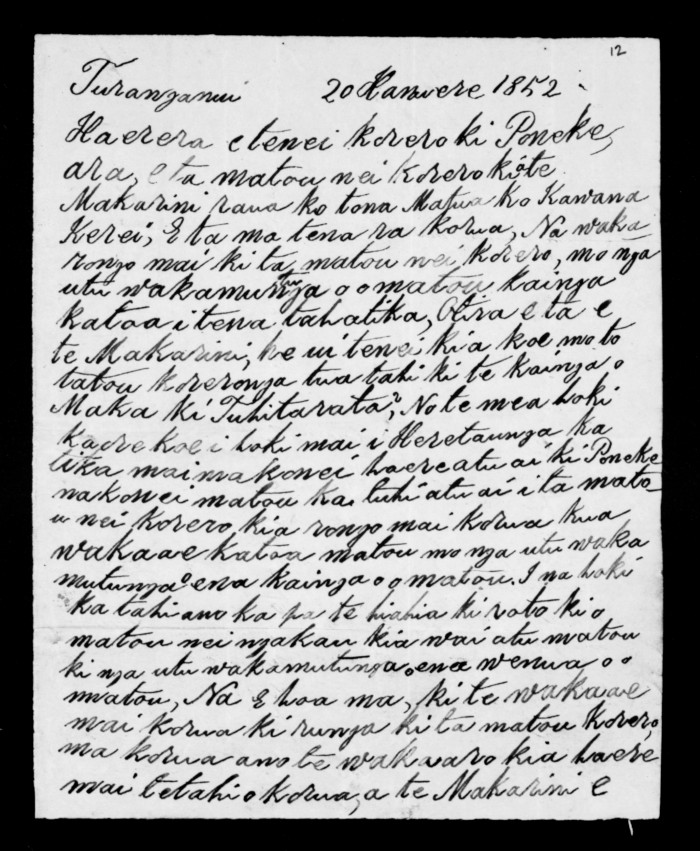 12
Turanganui 20 Hanuere 1852
Haerera e tenei korero ki Poneke,
ara, e ta matou nei korero ki a te
Makarini raua ko tona Matua ko Kawana
Kerei, E ta ma tena ra korua, Na waka-
rongo mai ki ta matou nei korero, mo nga
utu wakamutunga o o matou kainga
katoa i tena tahatika, Otira e ta e
te Makarini, he ui tenei ki a koe mo to
tatou koreronga tua tahi ki te kainga o
Maka ki Tuhitarata? No te mea hoki
kaore koe i hoki mai i Heretaunga ka
tika mai nakonei haere atu ai ki Poneke
nakonei matou ka tuhi atu ai i ta mato-
u nei korero kia rongo mai korua kua
wakaae katoa matou mo nga utu waka
mutunga o ena kainga o o matou. I na hoki
ka tahi ano ka pa te hiahia ki roto ki o
matou nei ngakau kia wai atu matou
ki nga utu wakamutunga o ena wenua o o
matou, Na E hoa ma, ki te wakaae
mai korua ki runga ki ta matou korero,
ma korua ano te wakaaro kia haere
mai tetahi o korua, a te Makarini e